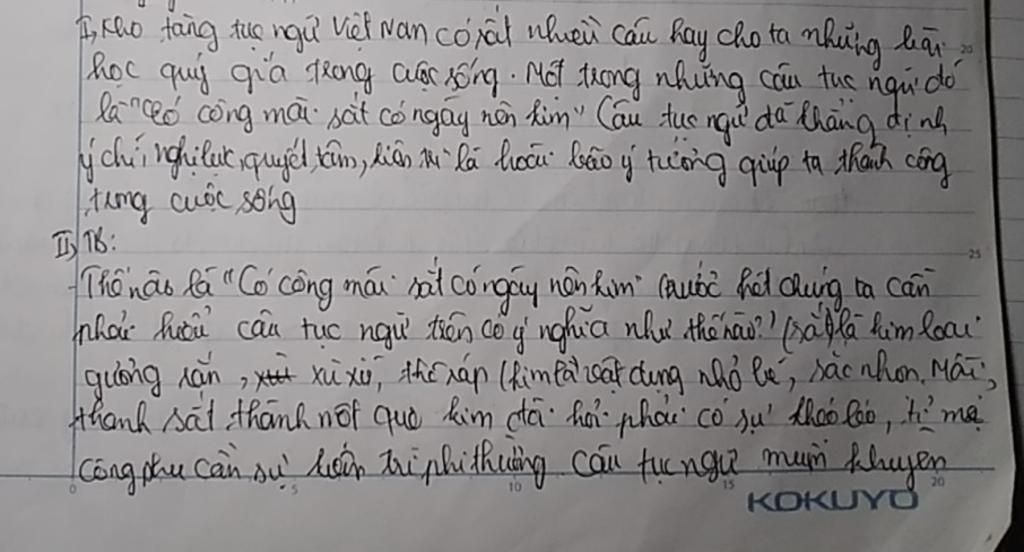 I, Kho tàng tục ngữ Việt Nam có rất nhiều câu hay cho ta những bài
học quý giá trong cuộc sống. Một trong những câu tục ngữ đó
là "Có công mài sắt có ngày nên kim" Câu tục ngữ đã khẳng định
ý chí, nghị lực, quyết tâm, kiên trì là hoài bão ý tưởng giúp ta thành công
trong cuộc sống
II, TB:
- Thế nào là "Có công mài sắt có ngày nên kim" trước hết chúng ta cần
phải hiểu câu tục ngữ trên có ý nghĩa như thế nào? (sắt) là kim loại
cứng rắn, xù xì, thô ráp (kim là vật dụng nhỏ bé, sắc nhọn. Mài
thanh sắt thành một que kim đòi hỏi phải có sự khéo léo, tỉ mỉ
công phu cần sự kiên trì phi thường câu tục ngữ muốn khuyên
0 5 10 15 20
20
25
KOKUYO